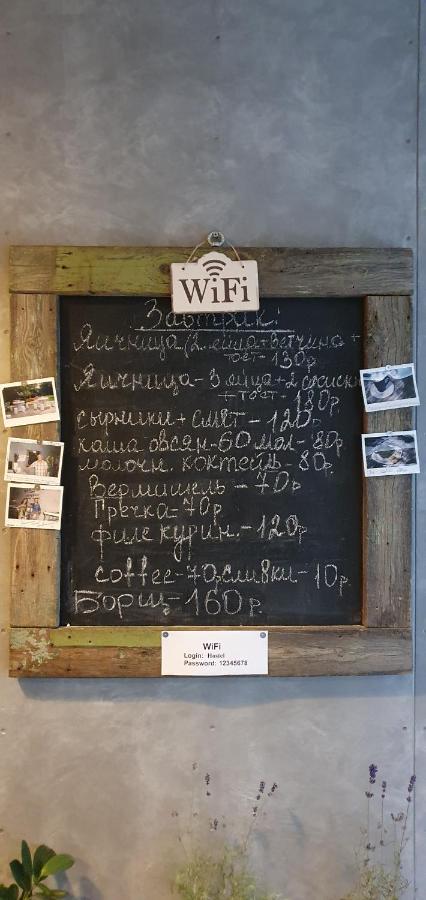 WiFi
Завтрак:
Яичница/2 яйца+ветчина+
тост-130р
Яичница-3 яйца+2 сосиски
+тост-180р
сырники+смет-120р
каша овсян-60 мол-80р
молочн. коктейль-80р.
Вермишель-70р
Гречка-70р
филе курин.-120р
coffee-70,сливки-10р.
Борщ-160р.
WiFi
Login: Hostel
Password: 12345678